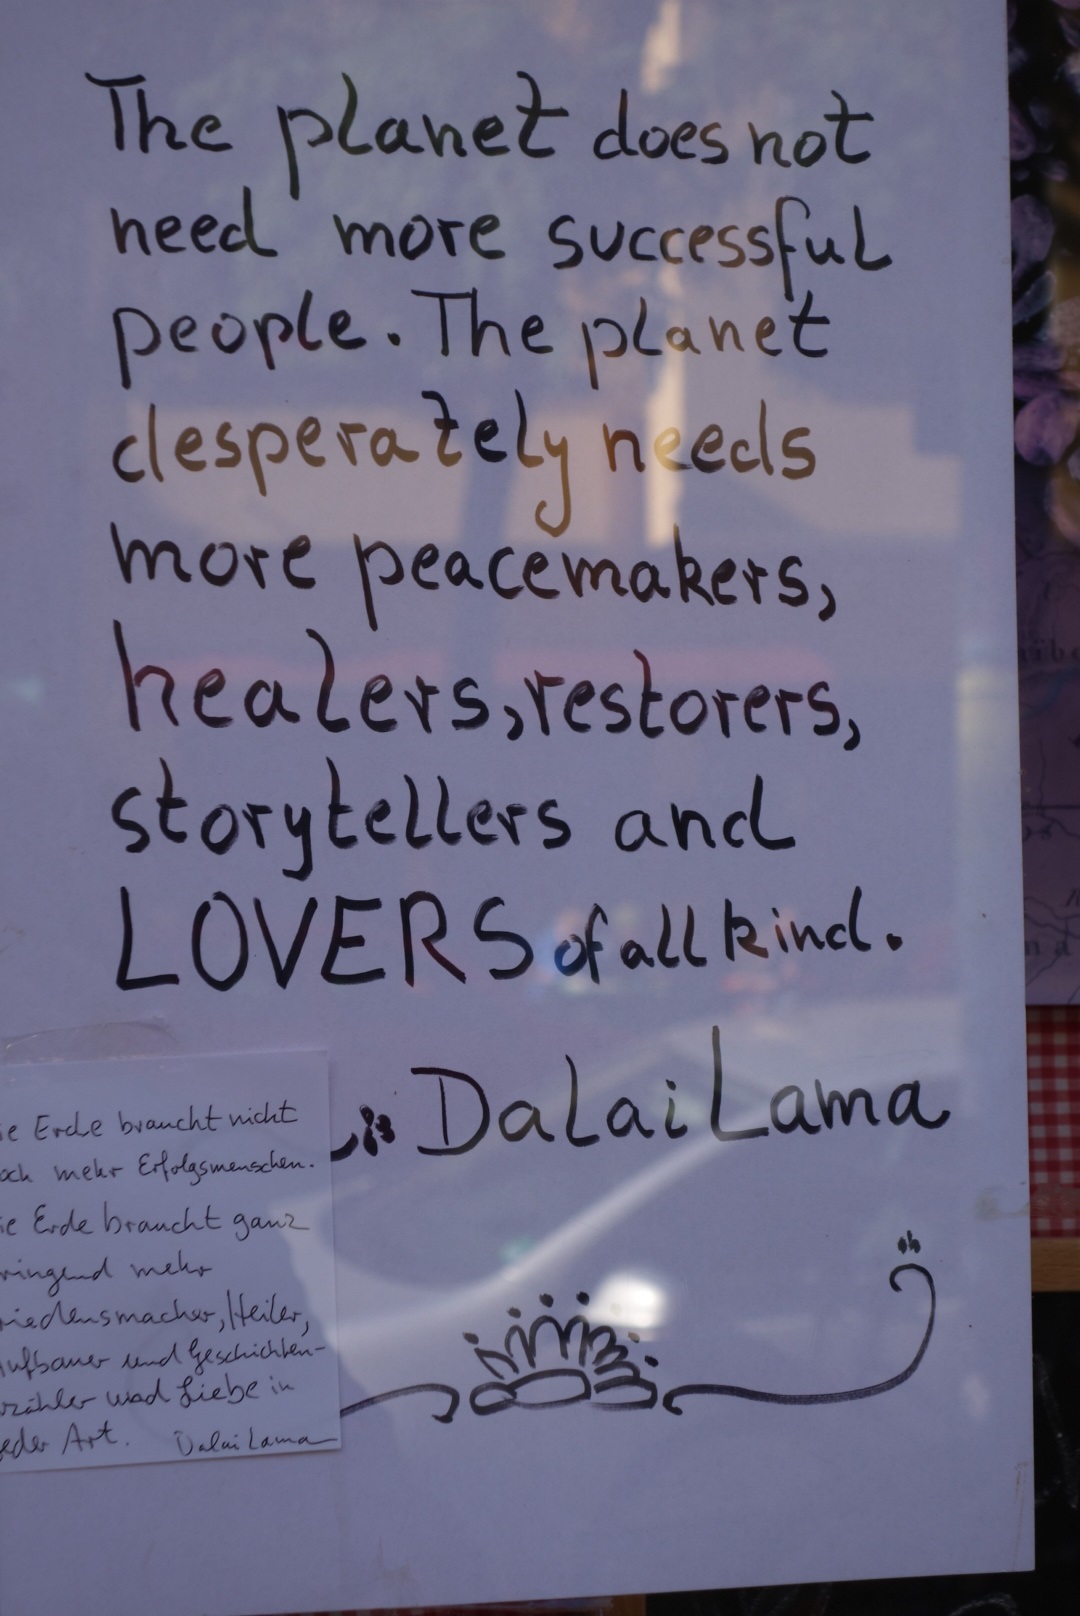 The planet does not
need more successful
people. The planet
desperately needs
more peacemakers,
healers, restorers,
storytellers and
LOVERS of all kind.
Dalai Lama
ie Erde braucht nicht
och mehr Erfolgsmenschen.
ie Erde braucht ganz
ringend mehr
riedensmacher, Heiler,
ufbauer und Geschichten-
rzähler und Liebe in
eder Art. Dalai Lama